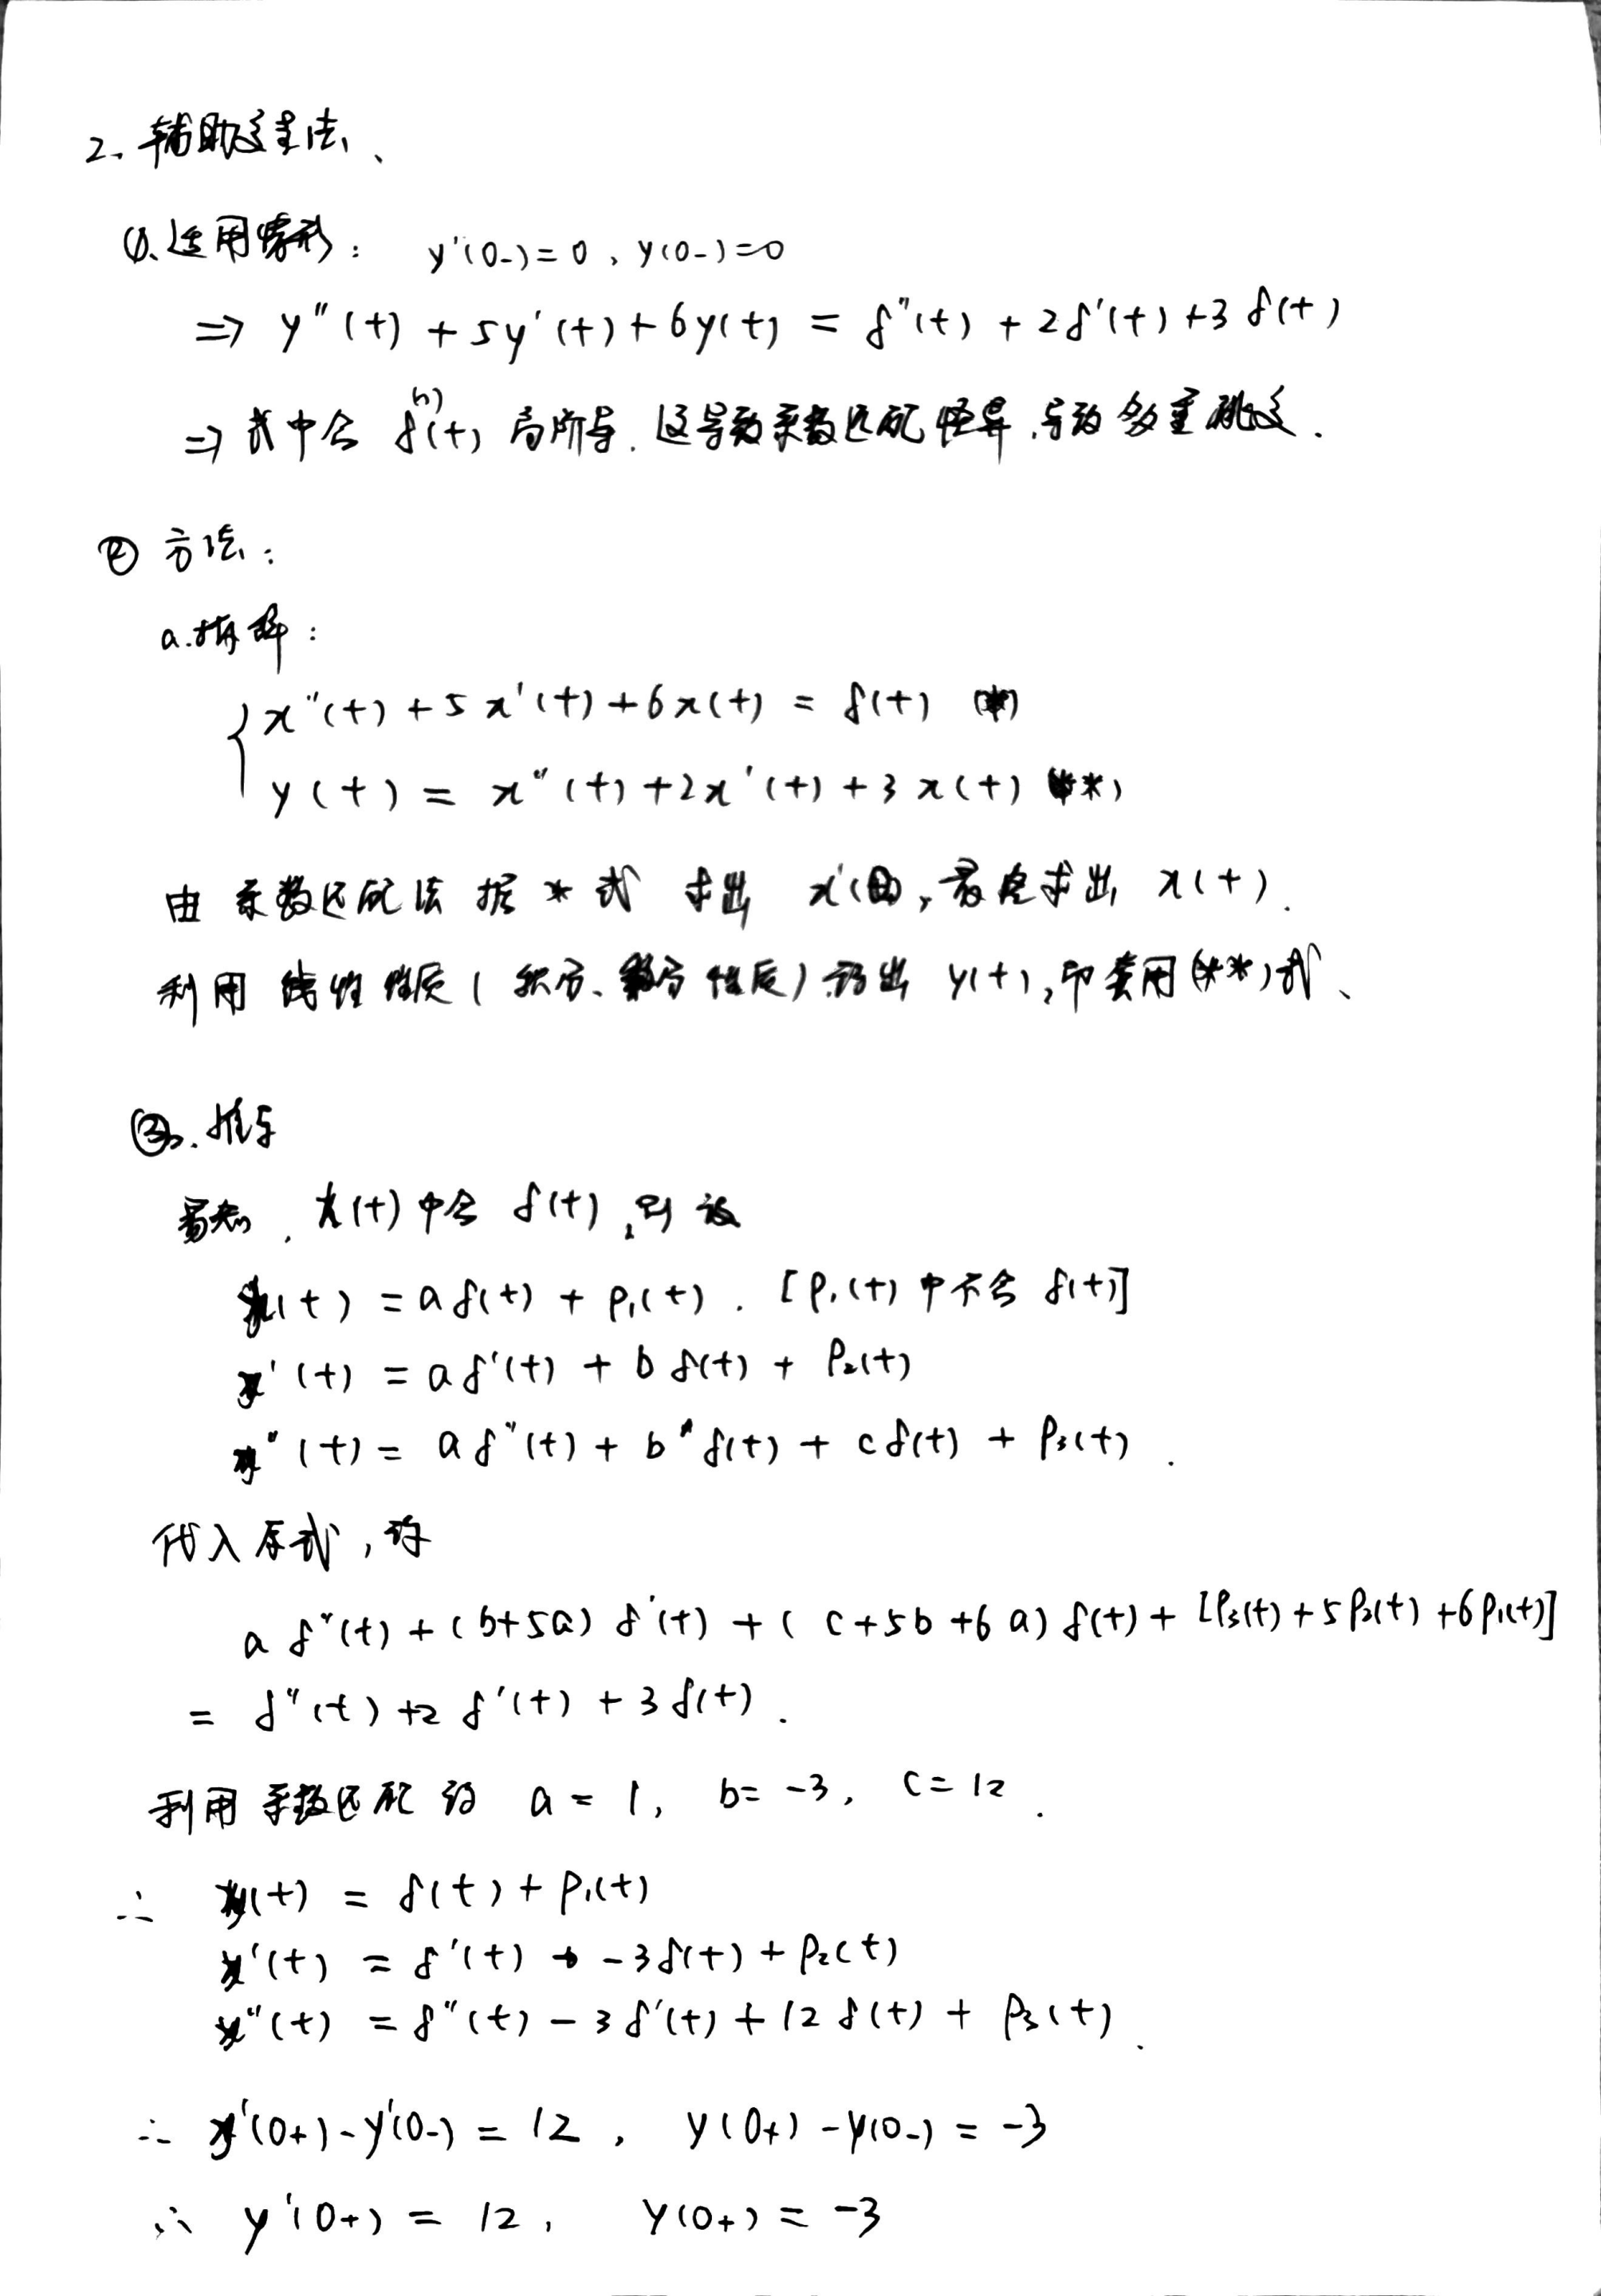 2、辅助变量法、
①、适用情形： y'(0-)=0，y(0-)=0
⇒ y''(t) + 5y'(t) + 6y(t) = δ''(t) + 2δ'(t) + 3δ(t)
⇒ 式中含 δ⁽ⁿ⁾(t) 高阶导. 这导致系数匹配怪异，导致多重跳变.
② 方法：
a.拆解：
x''(t) + 5x'(t) + 6x(t) = δ(t) (*)
y(t) = x''(t) + 2x'(t) + 3x(t) (**)
由系数匹配法据 * 式 求出 x'( ), 最后求出 x(t).
利用线性性质(积分、微分性质)得出 y(t), 即套用(**)式、
③. 推导
易知, (t)中含 δ(t), 则设
y(t) = aδ(t) + p₁(t). [p₁(t)中不含 δ(t)]
y'(t) = aδ'(t) + bδ(t) + p₂(t)
y''(t) = aδ''(t) + b'δ(t) + cδ(t) + p₃(t).
代入原式, 得
aδ''(t) + (b+5a)δ'(t) + (c+5b+6a)δ(t) + [p₃(t)+5p₂(t)+6p₁(t)]
= δ''(t) + 2δ'(t) + 3δ(t).
利用系数匹配得 a = 1, b = -3, c = 12.
∴ y(t) = δ(t) + p₁(t)
y'(t) = δ'(t) + -3δ(t) + p₂(t)
y''(t) = δ''(t) - 3δ'(t) + 12δ(t) + p₃(t).
∴ y'(0+) - y'(0-) = 12, y(0+) - y(0-) = -3
∴ y'(0+) = 12, y(0+) = -3